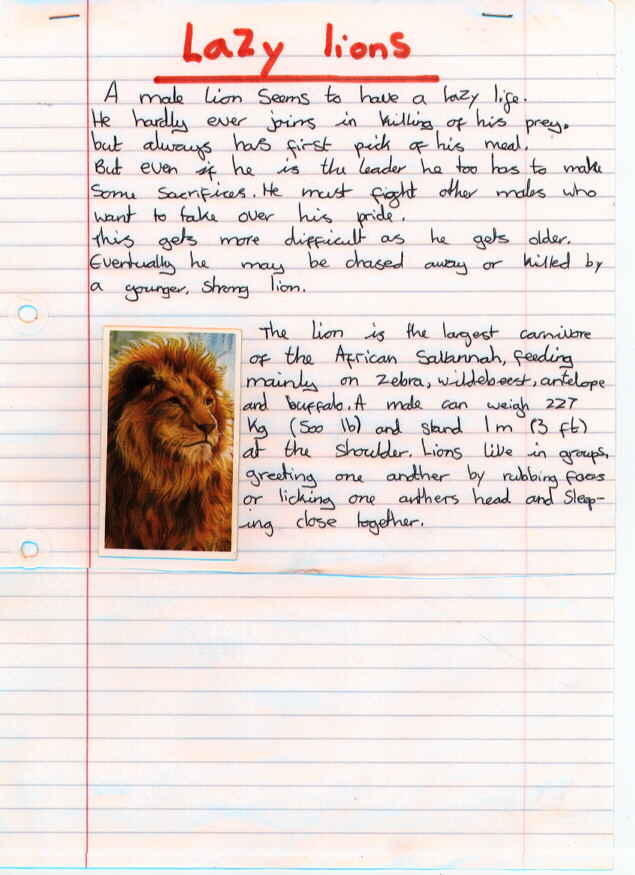 Lazy lions
A male lion seems to have a lazy life.
He hardly ever joins in killing of his prey.
but always has first pick of his meal.
But even if he is the leader he too has to make
some sacrifices. He must fight other males who
want to take over his pride.
This gets more difficult as he gets older.
Eventually he may be chased away or killed by
a younger, strong lion.
The lion is the largest carnivore
of the African Savannah, feeding
mainly on zebra, wildebeest, antelope
and buffalo. A male can weigh 227
kg (500 lb) and stand 1m (3 ft)
at the shoulder. Lions live in groups,
greeting one another by rubbing faces
or licking one anthers head and sleep-
ing close together.